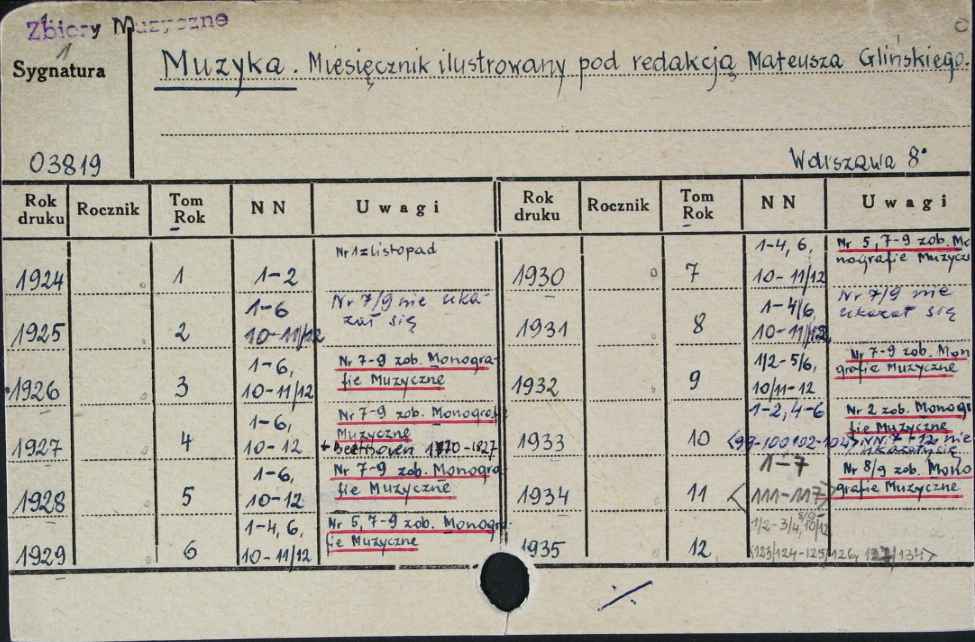 Zbiory Muzyczne
1
Sygnatura
Muzyka. Miesięcznik ilustrowany pod redakcją Mateusza Glińskiego.
03819
Warszawa 8°
Rok druku Rocznik Tom Rok NN Uwagi
1924 1 1-2 Nr 1 z listopad
1925 2 1-6 10-11/12 Nr 7/9 nie uka-
zał się
1926 3 1-6, 10-11/12 Nr 7-9 zob. Monogra-
fie Muzyczne
1927 4 1-6, 10-12 Nr 7-9 zob. Monograf
Muzyczne
+ Beethoven 1770-1827
1928 5 1-6, 10-12 Nr 7-9 zob. Monogra
fie Muzyczne
1929 6 1-4, 6, 10-11/12 Nr 5, 7-9 zob. Monogra-
fie Muzyczne
Rok druku Rocznik Tom Rok NN Uwagi
1930 7 1-4, 6, 10-11/12 Nr 5, 7-9 zob. Mo
nografie Muzycz
1931 8 1-4/6, 10-11/12 Nr 7/9 nie
ukazał się
1932 9 1/2-5/6, 10/11-12 Nr 7-9 zob. Mon
grafie Muzyczne
1933 10 1-2, 4-6 <99-100 102-104> Nr 2 zob. Monogr
fie Muzyczne
NN. 7-12 nie
1934 11 1-7 <111-117> Nr 8/9 zob. Mono
grafie Muzyczne
1935 12 1/2-3/4, 8/9- 10/12
<123/124-125/126, 134>